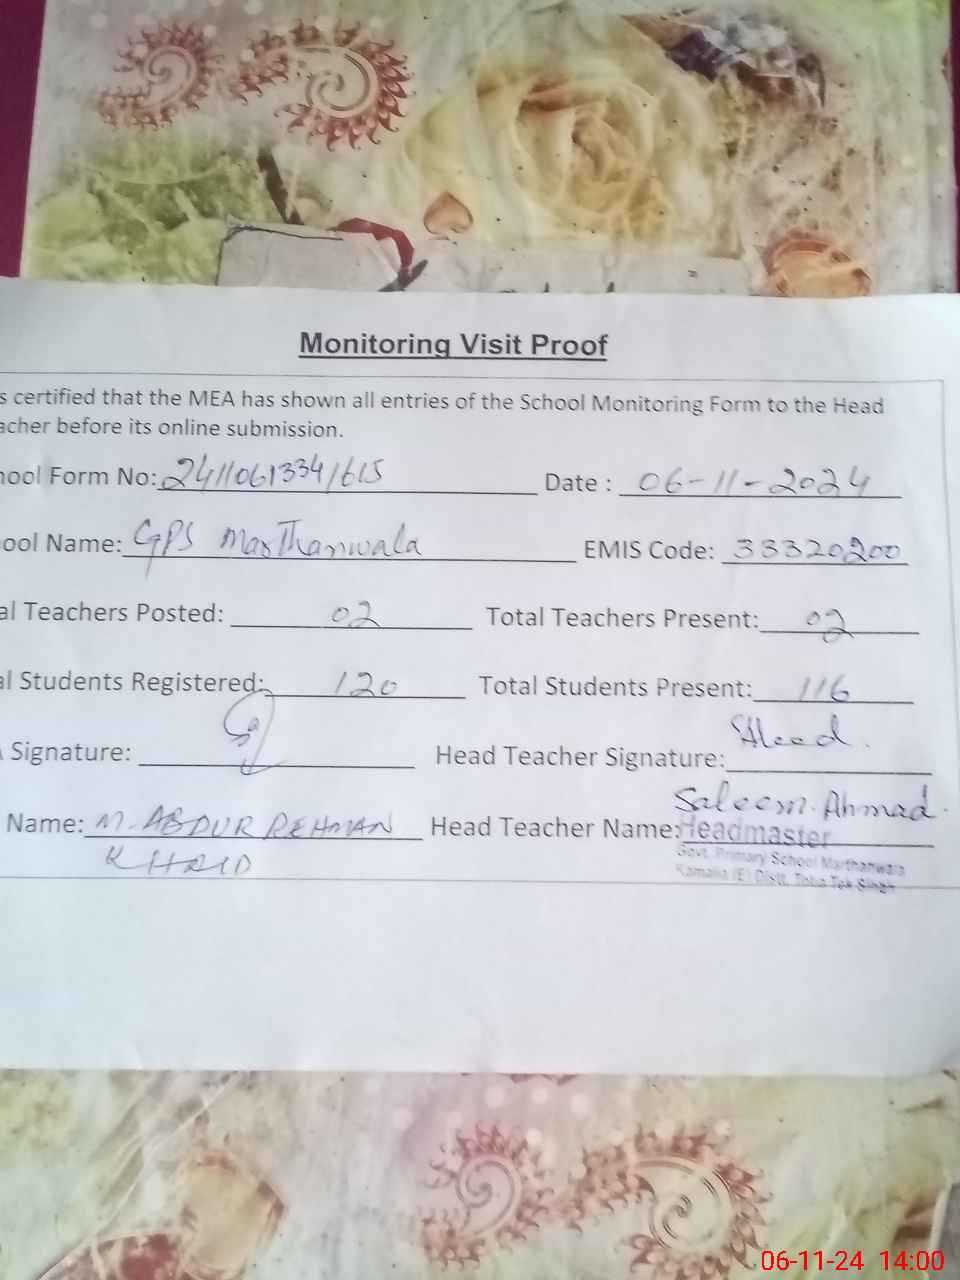 Monitoring Visit Proof
s certified that the MEA has shown all entries of the School Monitoring Form to the Head
acher before its online submission.
ool Form No: 24110613341615 Date : 06-11-2024
ool Name: GPS Marthanwala EMIS Code: 33320200
al Teachers Posted: 02 Total Teachers Present: 02
al Students Registered: 120 Total Students Present: 116
Signature: Head Teacher Signature:
Name: M. ABDUR REHMAN Head Teacher Name: Saleem Ahmad.
Headmaster
Govt. Primary School Marthanwala
Kamalia (E) Distt. Toba Tek Singh
06-11-24 14:00